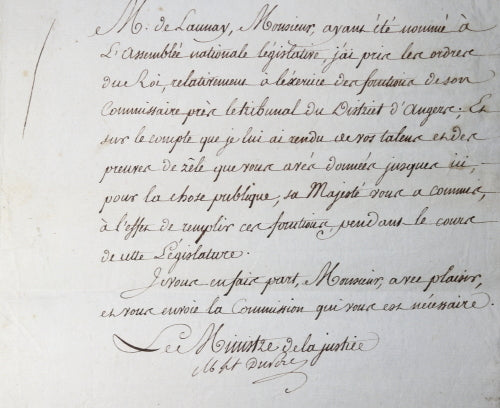 M. de Launay, Monsieur, ayant été nommé à
L'Assemblée nationale législative, j'ai pris les ordres
du Roi, relativement à l'exercice des fonctions de son
Commissaire près le tribunal du District d'Angers; Et
sur le compte que je lui ai rendu de vos talens et des
preuves de zèle que vous avés données jusques ici,
pour la chose publique, sa Majesté vous a commis,
à l'effet de remplir ces fonctions pendant le cours
de cette Législature.
Je vous en fais part, Monsieur, avec plaisir,
et vous envoie la Commission qui vous est nécessaire.
Le Ministre de la justice